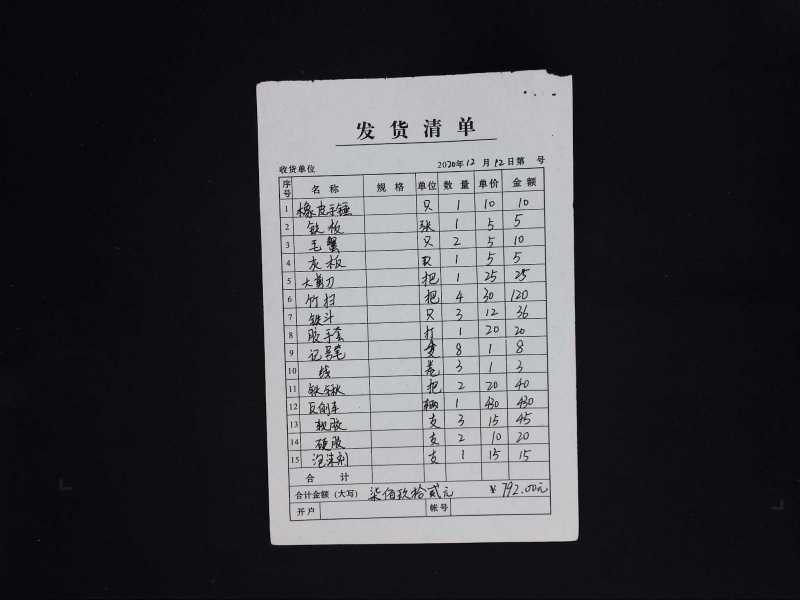 发货清单
收货单位 2020年12月12日第 号
序号 名称 规格 单位 数量 单价 金额
1 橡皮手锤 只 1 10 10
2 铁板 张 1 5 5
3 毛蟹 只 2 5 10
4 灰板 只 1 5 5
5 大剪刀 把 1 25 25
6 竹扫 把 4 30 120
7 铁斗 只 3 12 36
8 胶手套 打 1 20 20
9 记号笔 支 8 1 8
10 线 卷 3 1 3
11 铁锹 把 2 20 40
12 反倒车 辆 1 430 430
13 软胶 支 3 15 45
14 硬胶 支 2 10 20
15 泡沫剂 支 1 15 15
合计
合计金额(大写) 柒佰玖拾贰元 ¥792.00元
开户 帐号